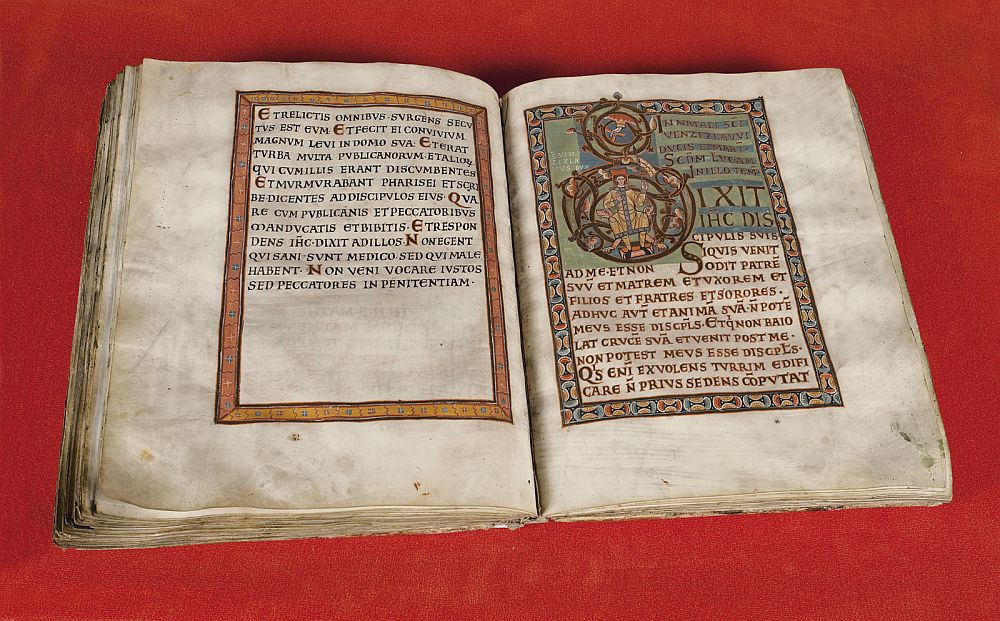 ET RELICTIS OMNIBUS · SURGENS SECU
TUS EST EUM · ET FECIT EI CONVIVIUM
MAGNUM LEVI IN DOMO SUA · ET ERAT
TURBA MULTA PUBLICANORUM · ET ALIOR̄
QUI CUM ILLIS ERANT DISCUMBENTES
ET MURMURABANT PHARISEI ET SCRI
BE · DICENTES AD DISCIPULOS EIUS · QUA
RE CUM PUBLICANIS ET PECCATORIBUS
MANDUCATIS ET BIBITIS · ET RESPON
DENS IH̄C · DIXIT AD ILLOS · NON EGENT
QUI SANI SUNT MEDICO · SED QUI MALE
HABENT · NON VENI VOCARE IUSTOS
SED PECCATORES IN PENITENTIAM ·
IN NATALI SC̄I
VENZIZLAVVI
DUCIS ET MART̄
SCDM̄ LUCAM
IN ILLO TEMP̄
DIXIT
IH̄C DIS
CIPULIS SUIS
SI QUIS VENIT
AD ME · ET NON ODIT PATRĒ
SUU̅ ET MATREM ET UXOREM ET
FILIOS ET FRATRES ET SORORES ·
ADHUC AUT̄ ET ANIMĀ SUĀ · N̄ POTĒ
MEUS ESSE DISCPL̄S · ET Q̄ NON BAIO
LAT CRUCĒ SUĀ ET VENIT POST ME ·
NON POTEST MEUS ESSE DISCPL̄S ·
QˈS ENĪ EX VOLENS TURRIM EDIFI
CARE N̄ PRIUS SEDENS CŌPUTAT